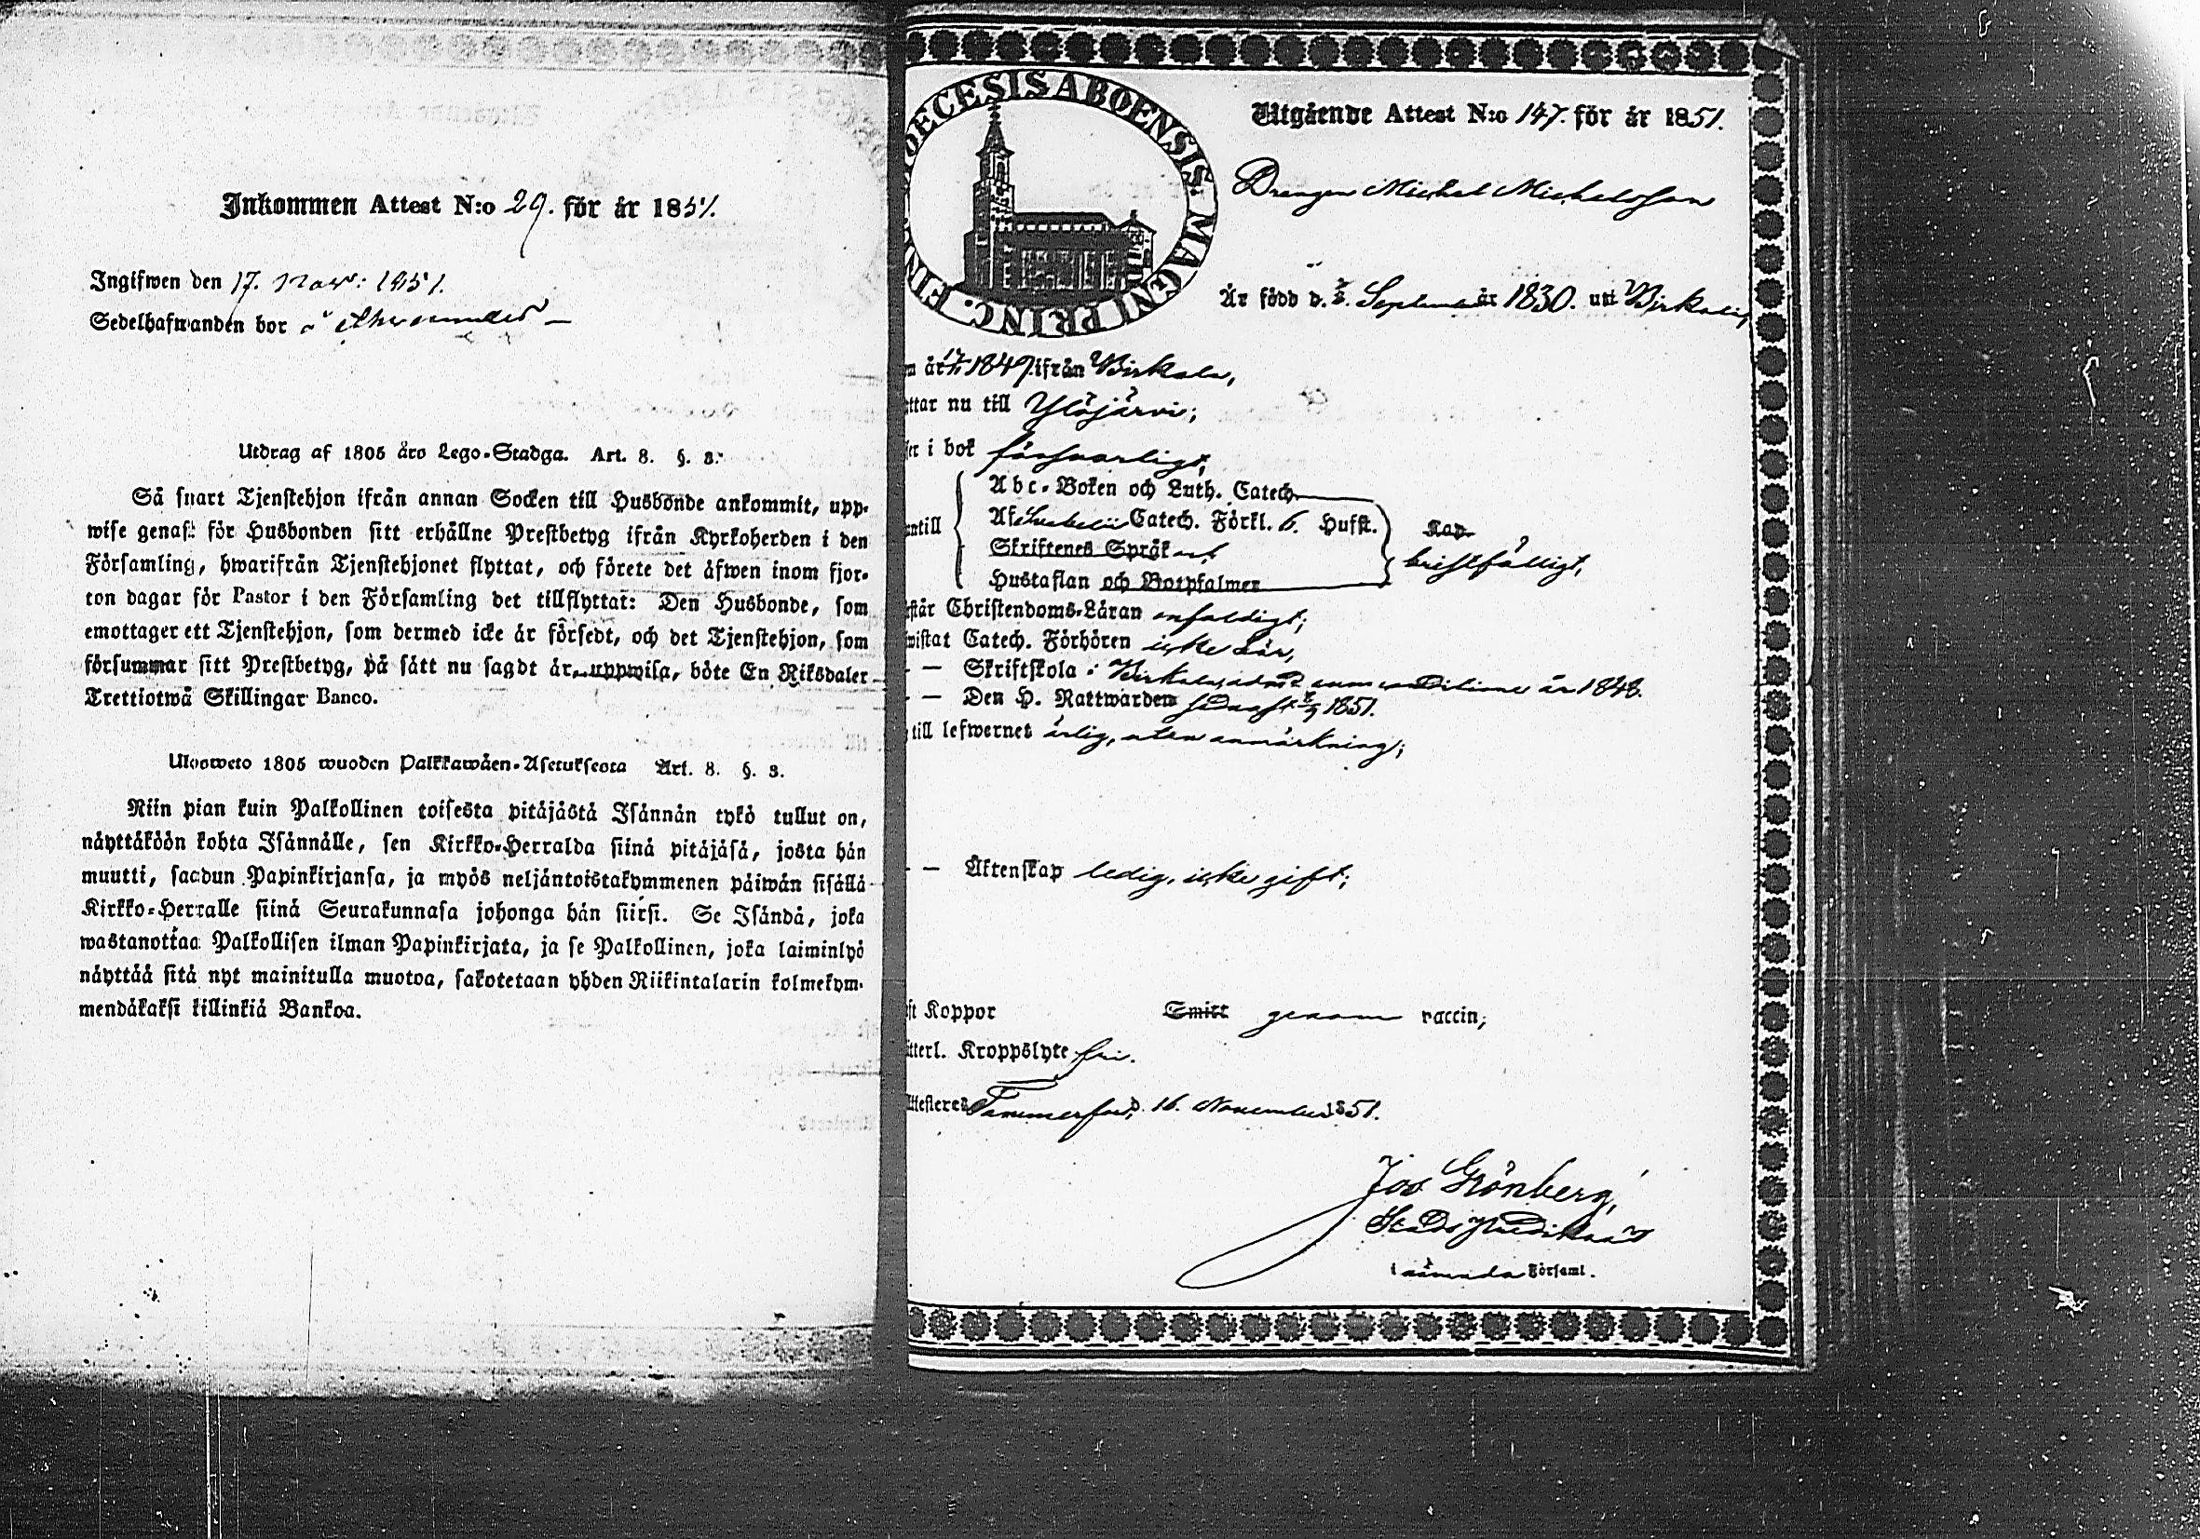 Inkommen Attest N:o 29. för år 1851.
Ingifwen den 17. Nov: 1851.
Sedelhafwanden bor å
Utdrag af 1805 års Lego-Stadga. Art. 8. §. 3.
Så snart Tjenstehjon ifrån annan Socken till Husbonde ankommit, upp-
wise genast för Husbonden sitt erhållne Prestbetyg ifrån Kyrkoherden i den
Församling, hwarifrån Tjenstehjonet flyttat, och förete det äfwen inom fjor-
ton dagar för Pastor i den Församling det tillflyttat: Den Husbonde, som
emottager ett Tjenstehjon, som dermed icke är försedt, och det Tjenstehjon, som
försummar sitt Prestbetyg, på sätt nu sagdt är, uppwisa, böte En Riksdaler
Trettiotwå Skillingar Banco.
Ulosweto 1805 wuoden Palkkawäen-Asetuksesta Art. 8. §. 3.
Niin pian kuin Palkollinen toisesta pitäjästä Isännän tykö tullut on,
näyttäköön kohta Isännälle, sen Kirkko-Herralda siinä pitäjäsä, josta hän
muutti, saadun Papinkirjansa, ja myös neljäntoistakymmenen päiwän sisällä
Kirkko-Herralle siinä Seurakunnasa johonga hän siirsi. Se Isändä, joka
wastanottaa Palkollisen ilman Papinkirjata, ja se Palkollinen, joka laiminlyö
näyttää sitä nyt mainitulla muotoa, sakotetaan yhden Riikintalarin kolmekym-
mendäkaksi killinkiä Bankoa.
DIOECESIS ABOENSIS. MAGNI PRINC. FIN
Utgående Attest N:o 147. för år 1851.
Drengen Michel Michelsson
Är född d. Septemb år 1830. uti Birkala,
år 1849 ifrån Birkala,
ttar nu till Ylöjärvi;
er i bok försvarligt,
Abc-Boken och Luth. Catech.
antill Af Svebelii Catech. Förkl. 6. Hufst. Kap.
Skriftenes Språk
bristfälligt,
Hustaflan och Botpsalmer
står Christendoms-Läran enfaldigt;
wistat Catech. Förhören icke här,
— — Skriftskola i Birkala, admitt. cum conditione år 1848.
— — Den H. Nattwarden sednast 1851.
till lefwernet ärlig, utan anmärkning;
— — Äktenskap ledig, icke gift;
ft Koppor Smitt genom vaccin;
tterl. Kroppslyte fri.
Attesteres Tammerfors d. 16. November 1851.
Jos Grönberg,
Stads Predikant
i nämnda Församl.